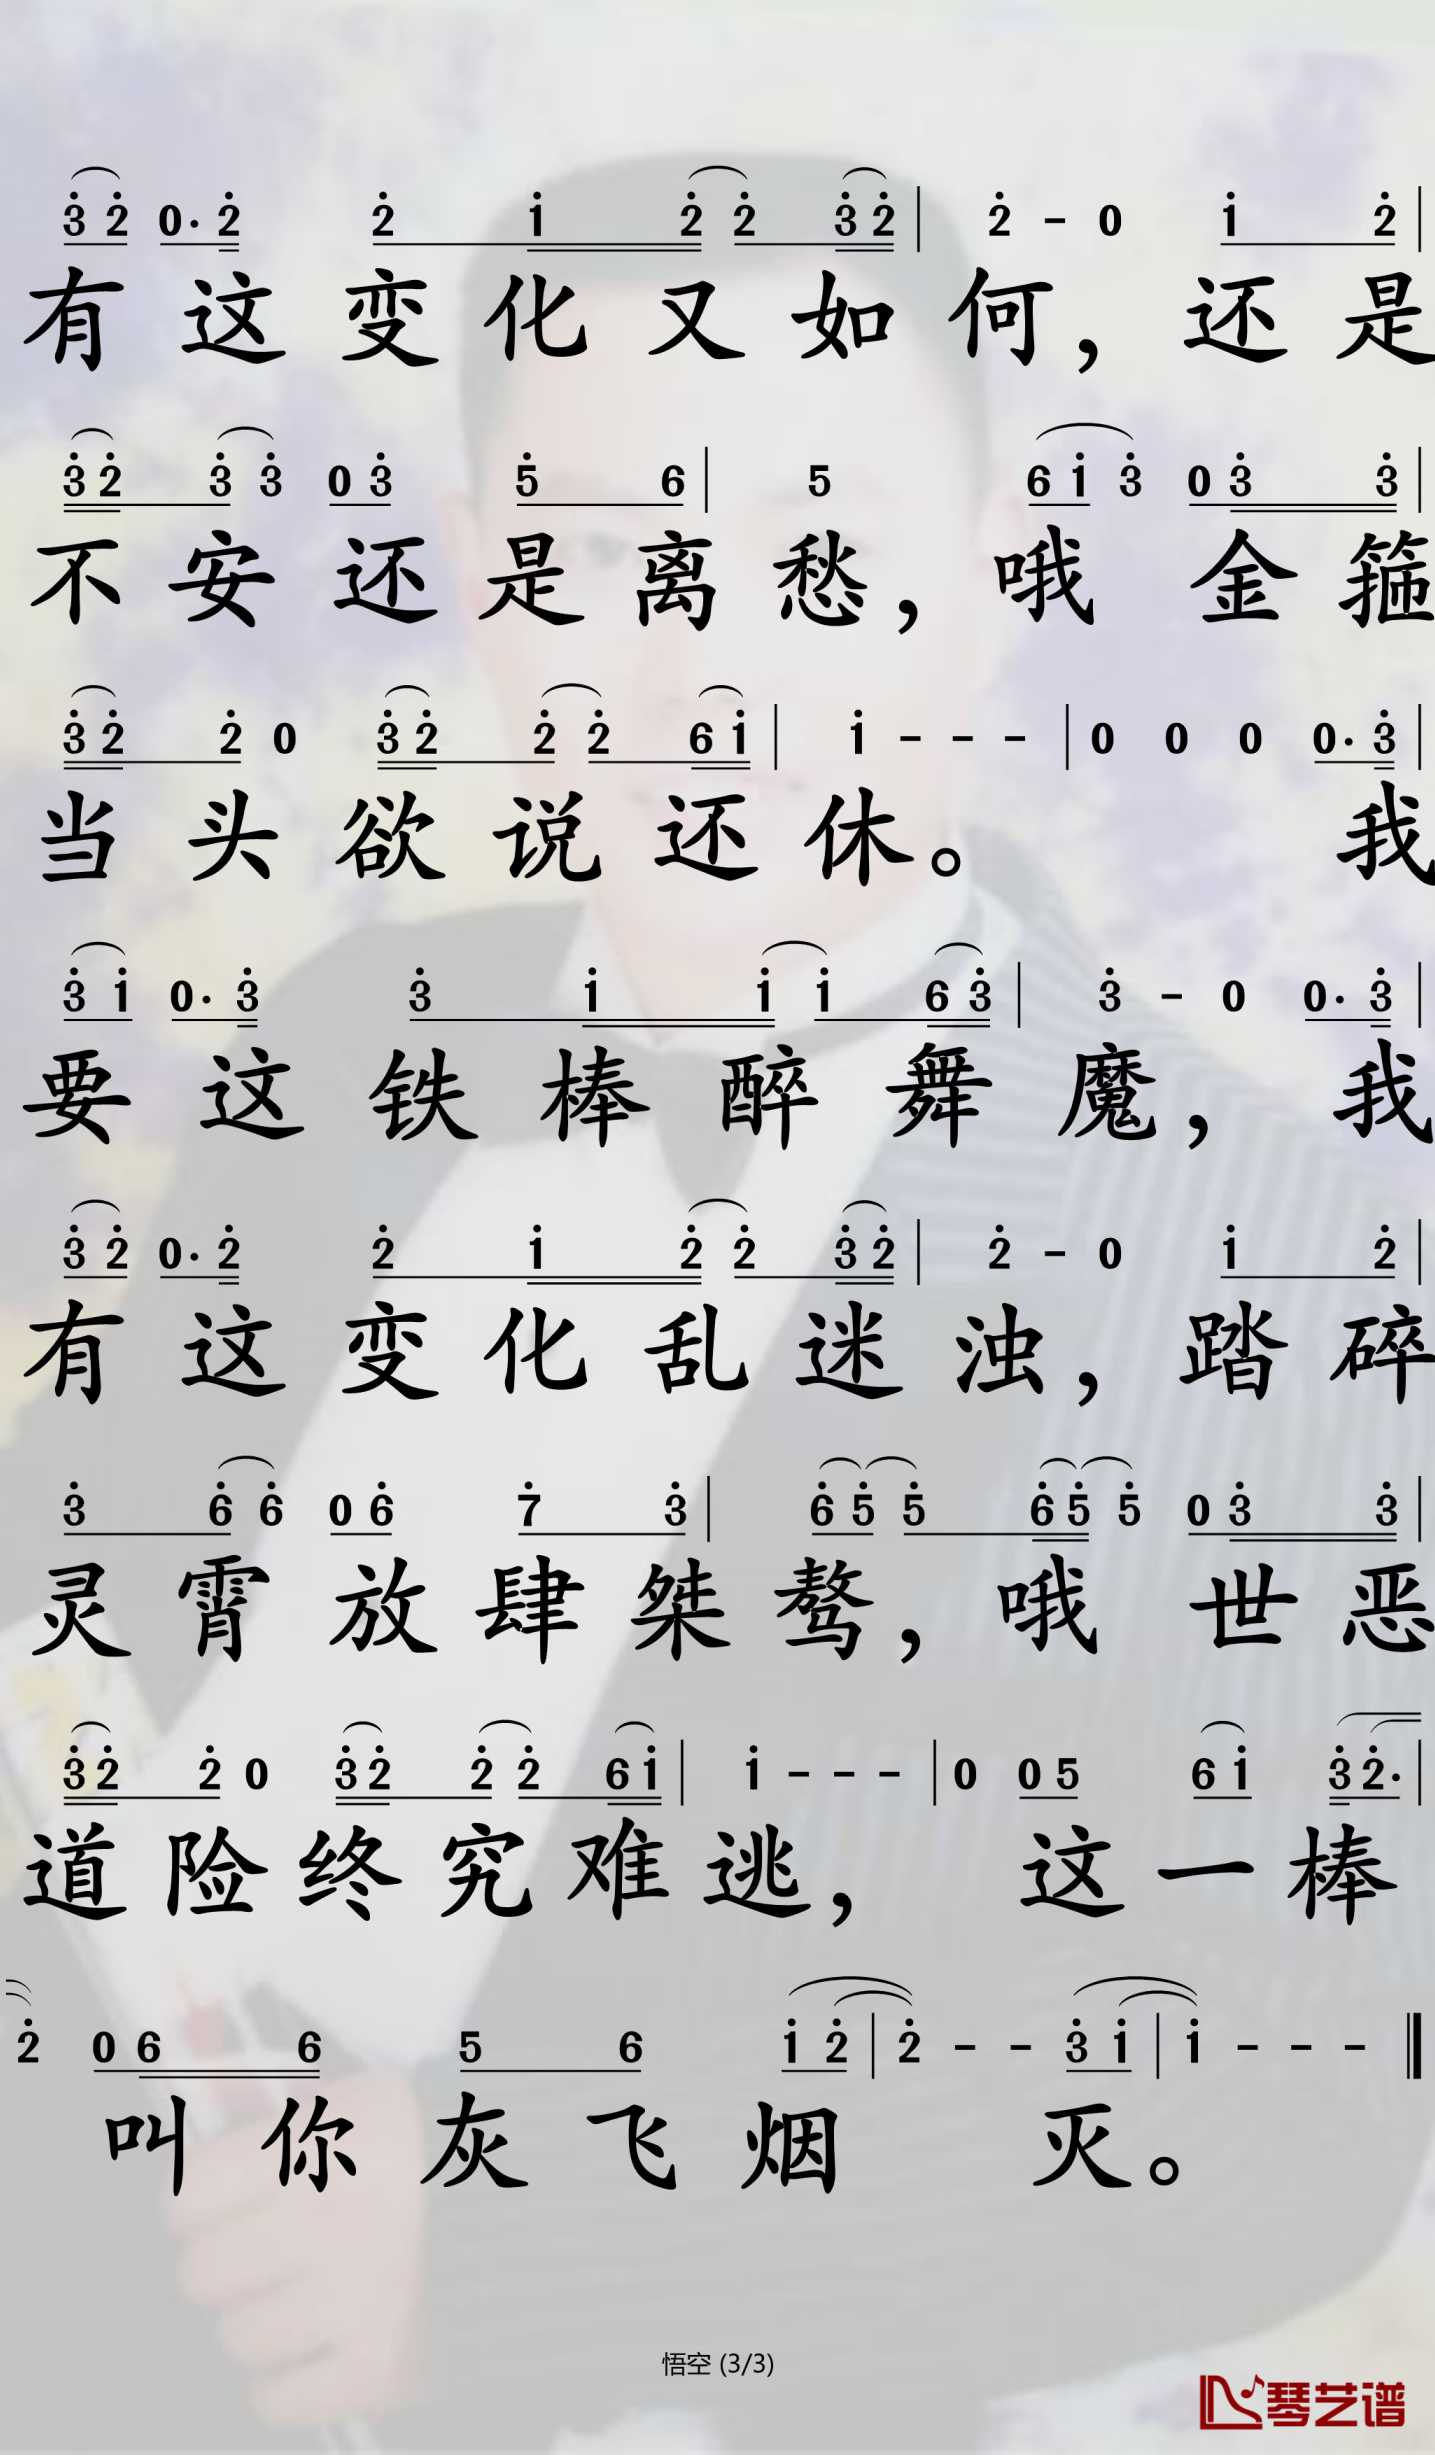 3 2 0. 2 2 1 2 2 3 2 | 2 - 0 1 2 |
有这变化又如何，还是
3 2 3 3 0 3 5 6 | 5 6 1 3 0 3 3 |
不安还是离愁，哦金箍
3 2 2 0 3 2 2 2 6 1 | 1 - - - | 0 0 0 0. 3 |
当头欲说还休。我
3 1 0. 3 3 1 1 1 6 3 | 3 - 0 0. 3 |
要这铁棒醉舞魔，我
3 2 0. 2 2 1 2 2 3 2 | 2 - 0 1 2 |
有这变化乱迷浊，踏碎
3 6 6 0 6 7 3 | 6 5 5 6 5 5 0 3 3 |
灵霄放肆桀骜，哦世恶
3 2 2 0 3 2 2 2 6 1 | 1 - - - | 0 0 5 6 1 3 2. |
道险终究难逃，这一棒
2 0 6 6 5 6 1 2 | 2 - - 3 1 | 1 - - - ‖
叫你灰飞烟灭。
悟空 (3/3)
琴艺谱